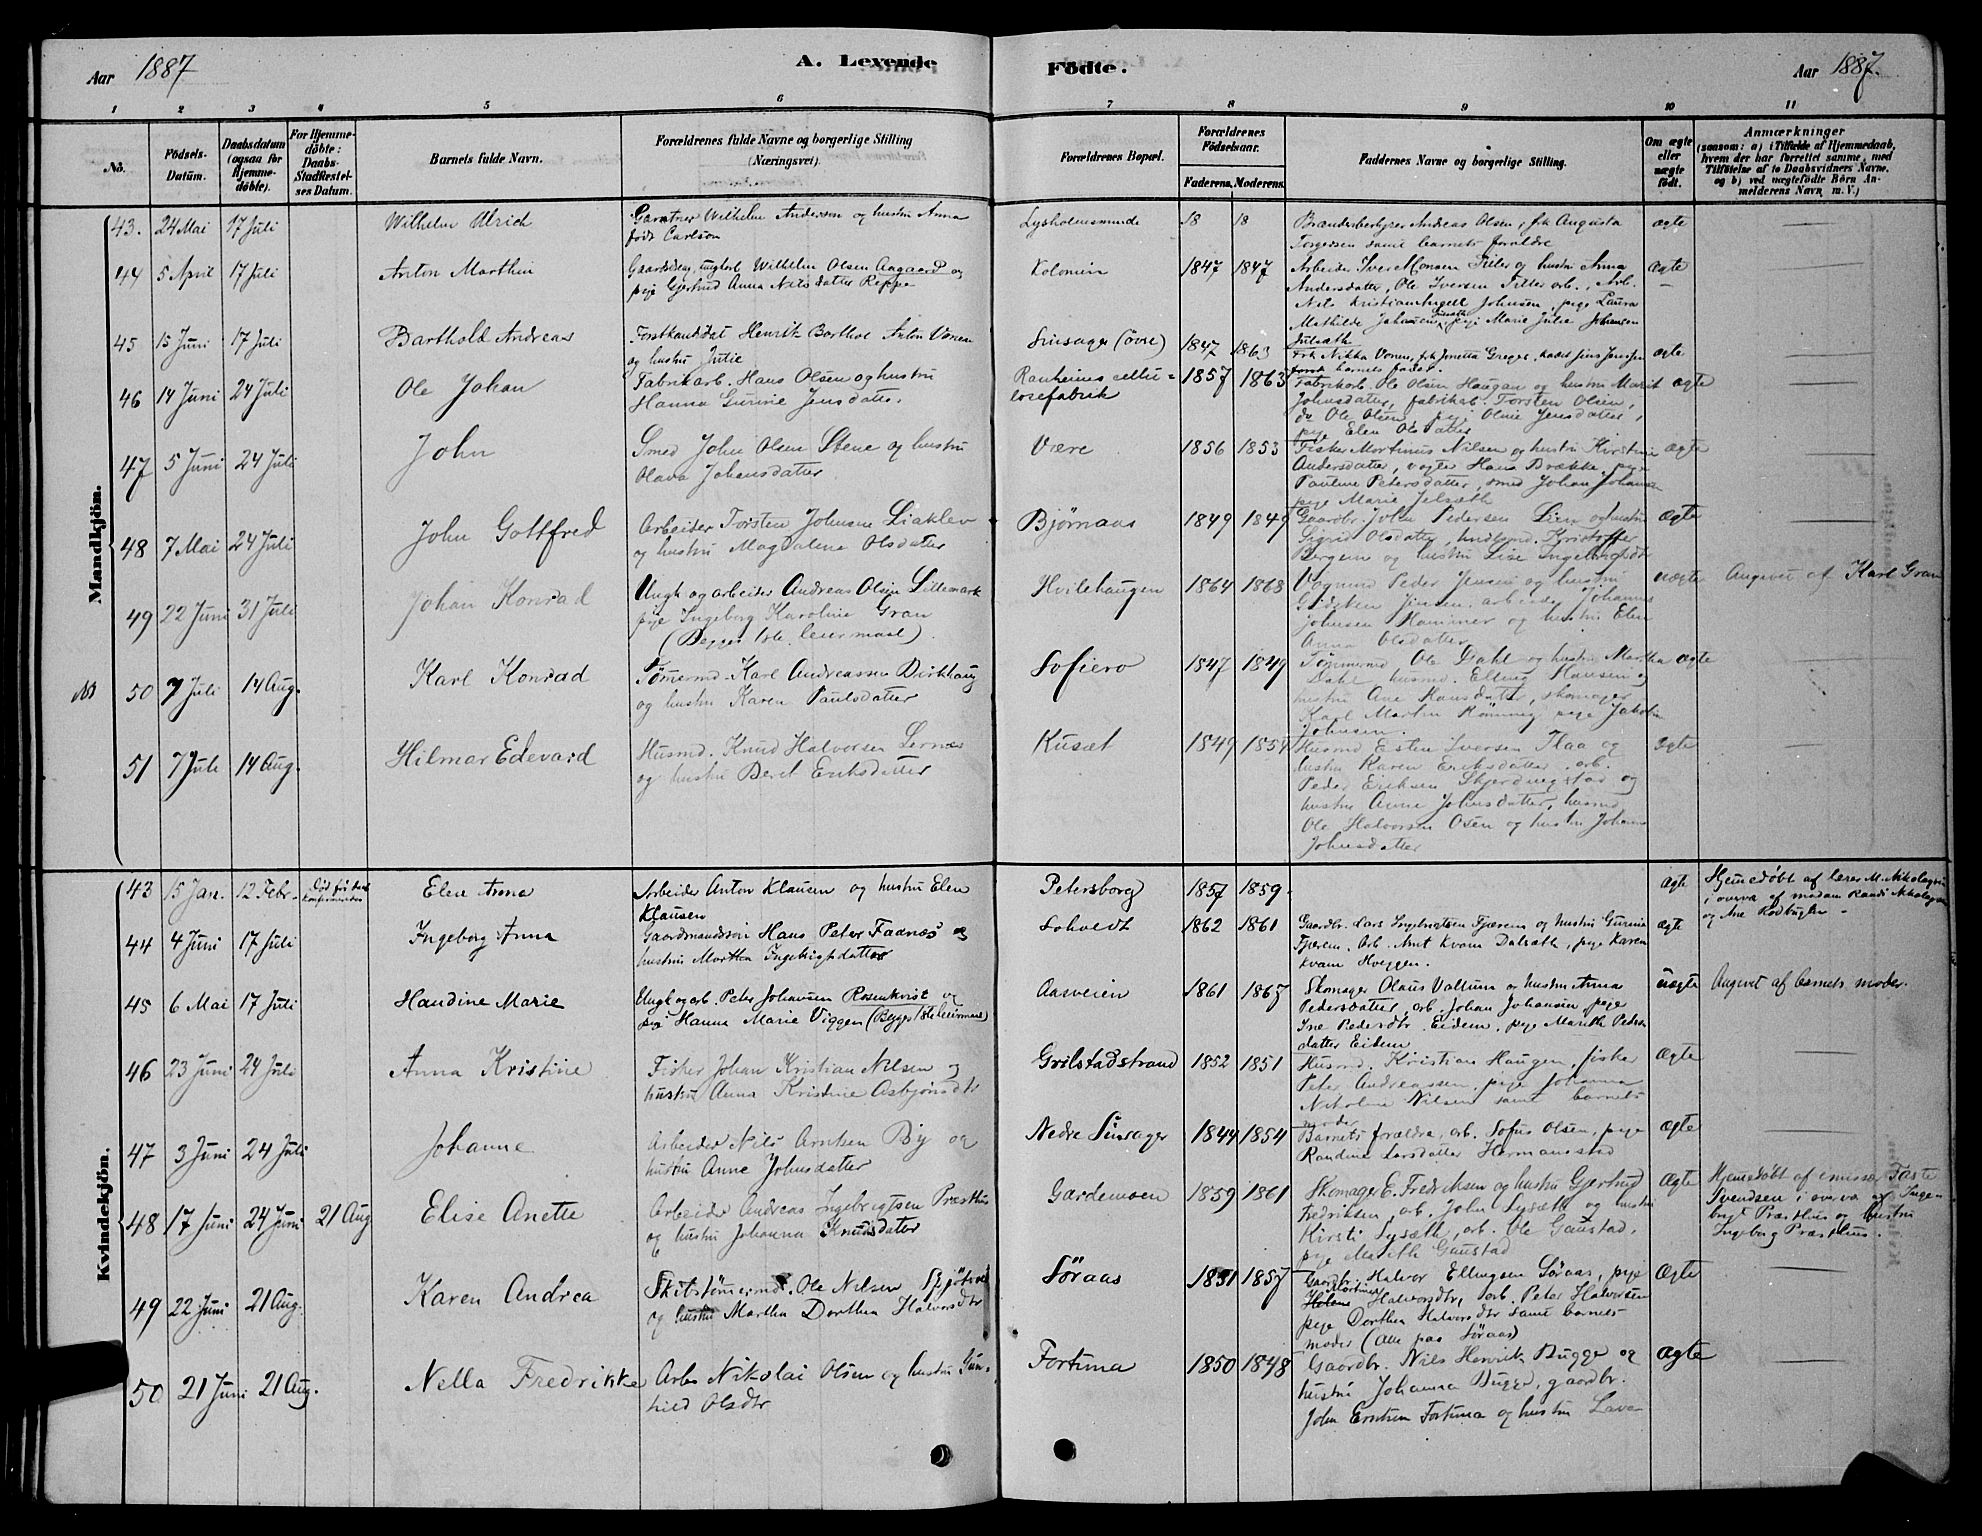 Aar 1887 A. Levende Födte. Aar 1887.
1 2 3 4 5 6 7 8 9 10 11
No.
Födsels-Datum.
Daabsdatum (ogsaa for Hjemmedöbte).
For Hjemmedöbte: Daabs-Stadfæstelses Datum.
Barnets fulde Navn.
Forældrenes fulde Navne og borgerlige Stilling (Næringsvei).
Forældrenes Bopæl.
Forældrenes Födselsaar.
Faderens. Moderens.
Faddernes Navne og borgerlige Stilling.
Om ægte eller uægte födt.
Anmærkninger
(saasom: a) i Tilfælde af Hjemmedaab, hvem der har forrettet samme, med Tilföielse af to Daabsvidners Navne, og b) ved uægtefödte Börn Anmelderens Navn m. V.)
Mandkjön.
43. 24 Mai 17 Juli Wilhelm Ulrich
Gartner Wilhelm Andersen og hustru Anna
født Carlson
Lysholmsminde 18 18
Brænderibestyrer Andreas Olsen, frk Augusta
Torgersen samt barnets forældre
ægte
44 5 April 17 Juli Anton Marthin
Gaardsdreng, ungkarl Wilhelm Olsen Aagaard og
pige Gjertrud Anna Nilsdatter Reppe
Kolonien 1847 1847
Arbeider Iver Monsen Tiller og hustru Anna
Andersdatter, Ole Iversen Tiller arb., Arb.
Nils Kristian Johnsen, pige Laura
Mathilde Johansen, pige Marie Julie Johansen
Julsæth
ægte
45 15 Juni 17 Juli Barthold Andreas
Forstkandidat Henrik Barthol Anton Vonen
og hustru Julie
Sinsager (øvre) 1847 1863
Frk Nikka Vonen, frk Jenetta Greger, kadet Jens Jenssen
samt barnets fader
ægte
46 14 Juni 24 Juli Ole Johan
Fabrikarb. Hans Olsen og hustru
Hanna Gurine Jensdatter
Ranheims cellu-
losefabrik 1857 1863
Fabrikarb. Ole Olsen Haugan og hustru Marit
Johnsdatter, fabrikarb. Torsten Olsen,
do Ole Olsen, pige Oline Jensdatter,
pige Elen Olsdatter
ægte
47 5 Juni 24 Juli John
Smed John Olsen Stene og hustru
Olava Johansdatter
Være 1856 1853
Fisker Mortinus Nilsen og hustru Kirstine
Andersdatter, vogter Hans Brække, pige
Pauline Petersdatter, smed Johan Johansen
pige Marie Jelsæth
ægte
48 7 Mai 24 Juli John Gottfred
Arbeider Torsten Johnsen Liaklev
og hustru Magdalena Olsdatter
Bjørnaas 1849 1849
Gaardbr. John Pedersen Lien og hustru
Sigrid Olsdatter, Kristoffer
Bergem og hustru Lise Ingebrigtsdtr
ægte
49 22 Juni 31 Juli Johan Konrad
Ungk og arbeider Andreas Olsen Lillemark
pige Ingeborg Karoline Gran
(Begges 1ste leiermaal)
Hvilehaugen 1864 1868
Vognmd Peder Jensen og hustru
Jensen, arbeider Johannes
Johnsen Hammer og hustru Elen
Anna Olsdatter
uægte
Angivet af Karl Gran
50 7 Juli 14 Aug. Karl Konrad
Tømermd. Karl Andreassen Birkhaug
og hustru Karen Paulsdatter
Sofiero 1847 1849
Tømmermd Ole Dahl og hustru Martha
Dahl, husmd. Elling Hansen og
hustru Ane Hansdatter, skomager
Karl Martin Rønning, pige Jakobine
Johnsen.
ægte
51 7 Juli 14 Aug. Hilmar Edevard
Husmd. Knud Halvorsen Lernæs
og hustru Beret Eriksdatter
Kusæt 1849 1854
Husmd Esten Iversen Flaa og
hustru Karen Eriksdatter, arb.
Peder Eriksen Skjerdingstad og
hustru Anne Johnsdatter, husmd
Ole Halvorsen Osen og hustru Johanna
Johnsdatter
ægte
Kvindekjön.
43 15 Jan. 12 Febr. Død før konfirmeredes Elen Anna
Arbeider Anton Klausen og hustru Elen
Klausen
Petersborg 1857 1859.
ægte
Hjemedøbt af lærer M. Nikolaysen
i overvær af madam Randi Nikolaysen
og Ane Rødbygten
44 4 Juni 17 Juli Ingeborg Anna
Gaardmandssøn Hans Peter Fadnes og
hustru Martha Ingebrigtsdatter
Solvedt 1862 1861
Gaardbr. Lars Ingebrigtsen Fjærem og hustru Gurine
Fjærem, Arb. Arnt Kvam Dalsæth, pige Karen
Kvam Hveggen.
ægte
45 6 Mai 17 Juli Haudine Marie
Ungk og arb. Peter Johansen Rosenkvist og
pige Hanna Marie Viggen (Begges 1ste leiermaal)
Aasveien 1861 1865
Skomager Olaus Vallum og hustru Anna
Pedersdatter, arb. Johan Johansen pige
Ine Pedersdtr. Eidem, pige Marith Peders
datter Eidem
uægte
Angivet af barnets moder.
46 23 Juni 24 Juli Anna Kristine
Fisker Johan Kristian Nilsen og
hustru Anna Kristine Asbjørnsdtr
Grilstadstrand 1852 1851
Husmd. Kristian Haugen, fisker
Peter Andreassen, pige Johanna
Nikoline Nilsen samt barnets
moder
ægte
47 3 Juni 24 Juli Johanne
Arbeider Nils Arntsen By og
hustru Anne Johnsdatter
Nedre Sinsager 1844 1854
Barnets forældre, arb. Sofus Olsen, pige
Randine Larsdatter Hermanstad
ægte
48 17 Juni 24 Juni 21 Aug Elise Anette
Arbeider Andreas Ingebrigtsen Præsthus
og hustru Johanna Knudsdatter
Gardemoen 1859 1861
Skomager E. Fredriksen og hustru Gjertrud
Fredriksen, arb. John Lysæth og hustru
Kirsti Lysæth, arb. Ole Gaustad,
pige Marith Gaustad
ægte
Hjemedøbt af emissær Taste
Svendsen i overvær af Ingebrigt Præsthus og hustru
Ingeborg Præsthus.
49 22 Juni 21 Aug. Karen Andrea
Skibstømermd. Ole Nilsen
og hustru Martha Dorthea Halvorsdtr
Søraas 1831 1857
Gaardbr. Halvor Ellingsen Søraas, pige
Mortine
Helene Halvorsdtr, arb. Peter Halvorsen
pige Dorthea Halvorsdtr samt barnets
moder (alle paa Søraas)
ægte
50 21 Juni 21 Aug. Nella Fredrikke
Arb. Nikolai Olsen og hustru Gun-
hild Olsdtr
Fortuna 1850 1848
Gaardbr. Nils Henrik Bugge og
hustru Johanna Bugge, gaardbr.
John Erntsen Fortuna og hustru Lava
ægte